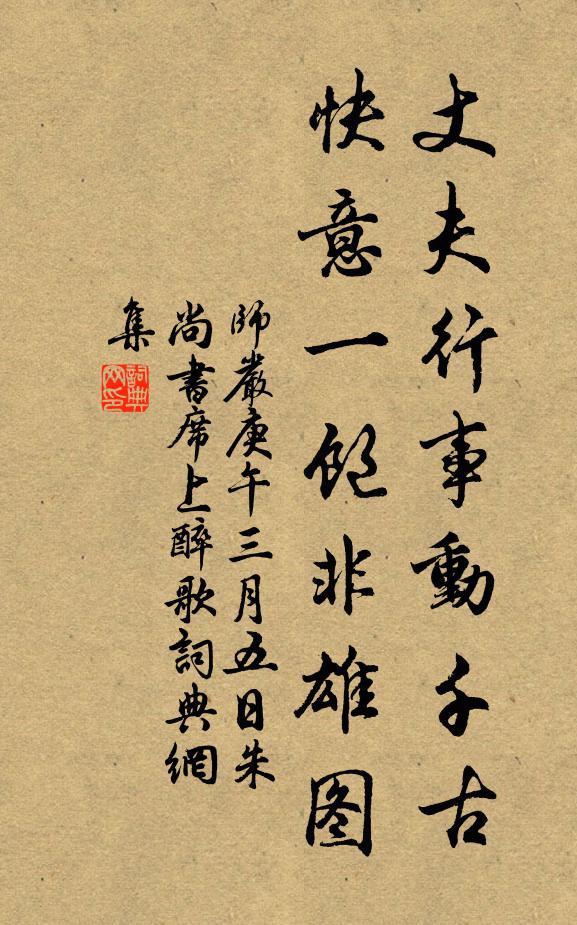 丈夫行事動千古
快意一飽非雄图
師嚴庚午三月五日朱
尚書席上醉歌詞典網
集
詞典
网印